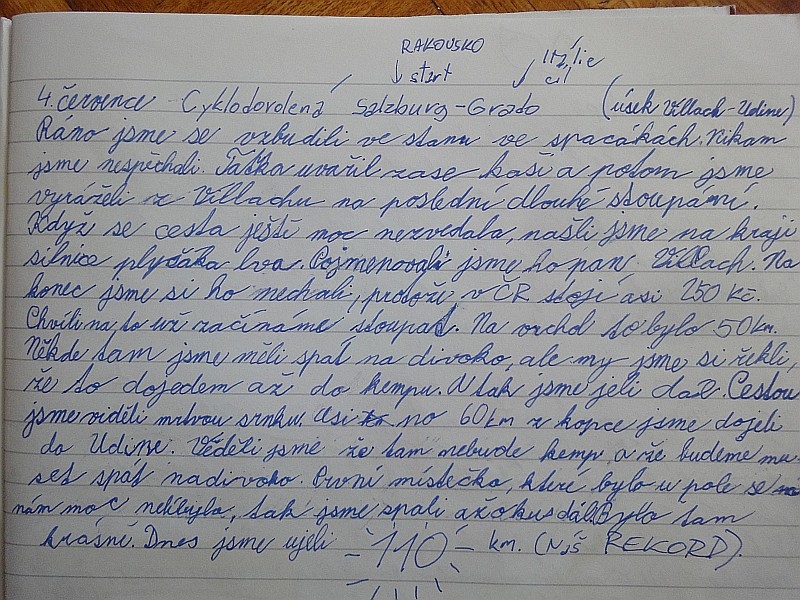 RAKOUSKO
start
Itálie
cíl
4. července - Cyklodovolená Salzburg - Grado (úsek Villach - Udine)
Ráno jsme se vzbudili ve stanu ve spacákách. Nikam
jsme nespěchali. Taťka uvařil zase kaši a potom jsme
vyráželi z Villachu na poslední dlouhé stoupání.
Když se cesta ještě moc nezvedala, našli jsme na kraji
silnice plyšáka lva. Pojmenovali jsme ho pan Villach. Na
konec jsme si ho nechali, protože v ČR stojí asi 250 Kč.
Chvíli na to už začínáme stoupat. Na vrchol to bylo 50 km.
Někde tam jsme měli spát na divoko, ale my jsme si řekli,
že to dojedem až do kempu. A tak jsme jeli dál. Cestou
jsme viděli mrtvou srnku. Asi po 60 km z kopce jsme dojeli
do Udine. Věděli jsme že tam nebude kemp, a že budeme mu-
set spát nadivoko. První místečko, které bylo u pole se
nám moc nelíbilo, tak jsme spali až okus dál. Bylo tam
krásně. Dnes jsme ujeli - 110 - km. (Náš REKORD).